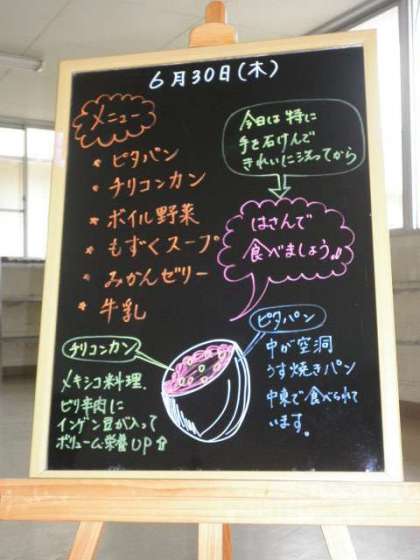 6月30日(木)
メニュー
* ピタパン
* チリコンカン
* ボイル野菜
* もずくスープ
* みかんゼリー
* 牛乳
今日は特に
手を石けんで
きれいに洗ってから
はさんで
食べましょう!!
チリコンカン
メキシコ料理。
ピリ辛肉に
インゲン豆が入って
ボリューム・栄養UP⇧
ピタパン
中が空洞
うす焼きパン
中東で食べられて
います。